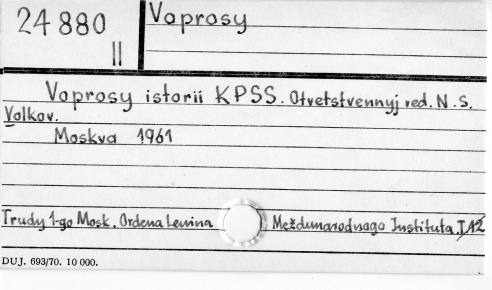 24 880
II
Voprosy
Voprosy istorii KPSS. Otvetstvennyj red. N. S.
Volkov.
Moskva 1961
Trudy 1-go Mosk. Ordena Lenina Meždunarodnogo Instituta.
DUJ. 693/70. 10 000.